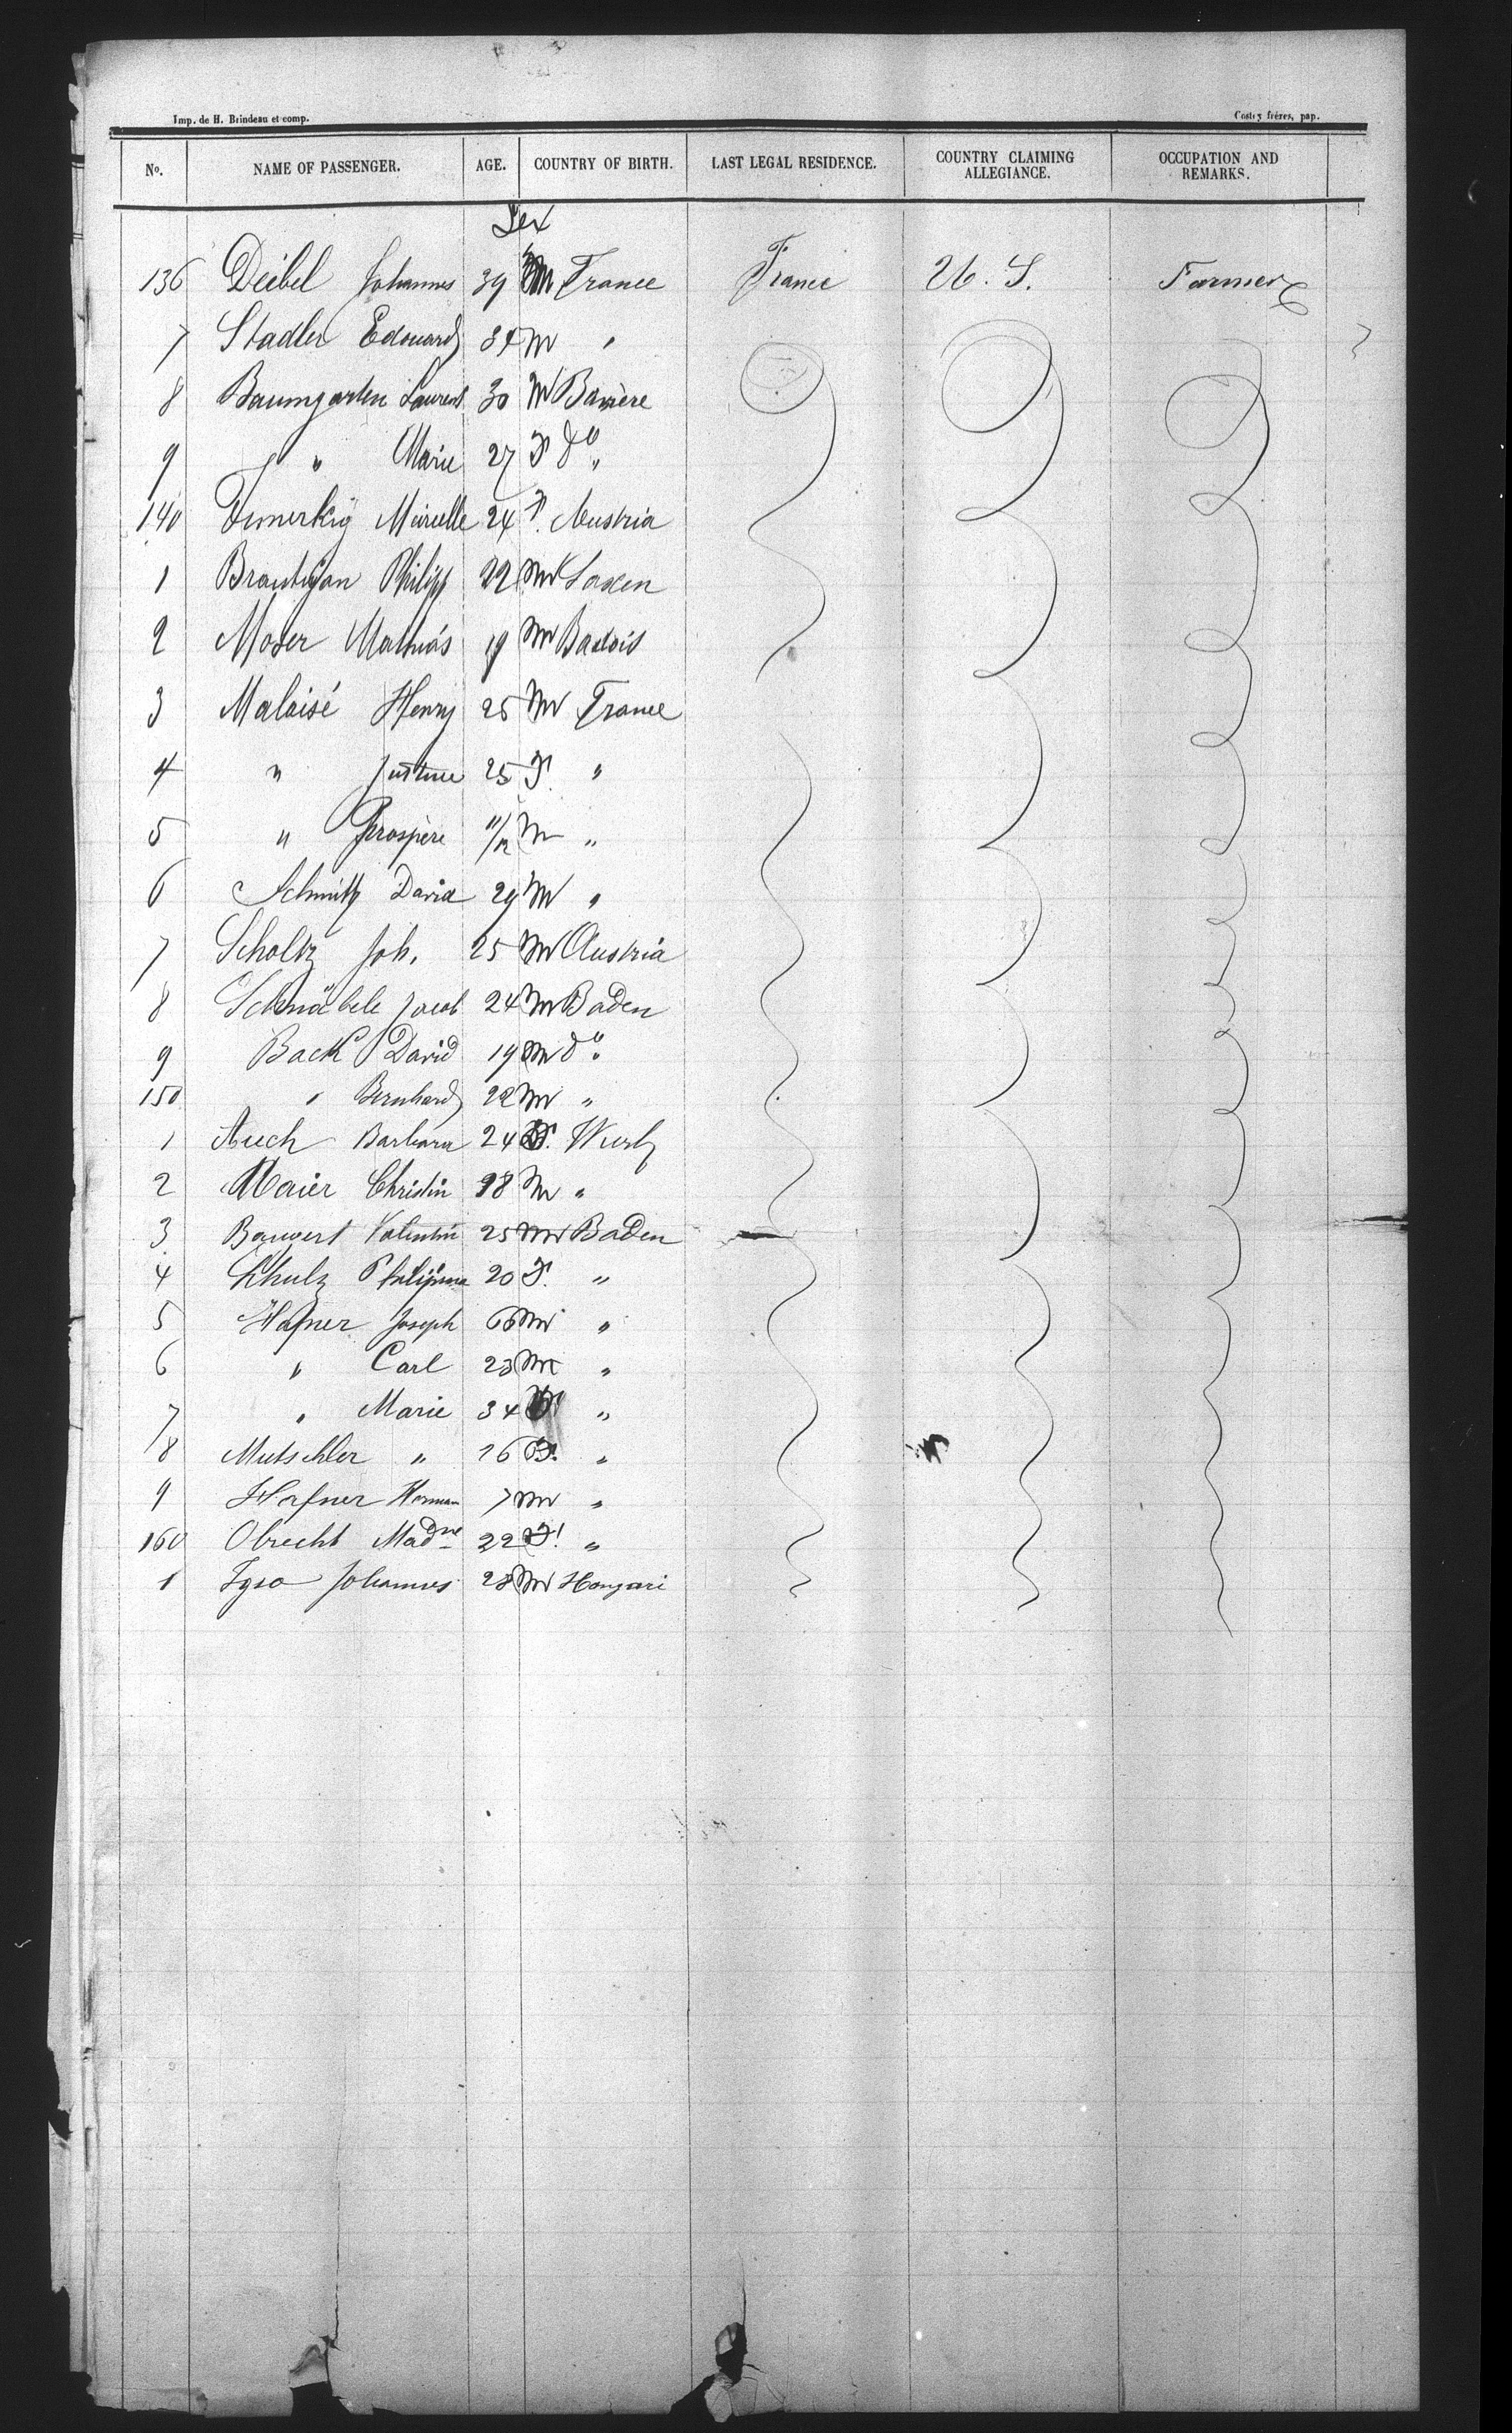 Imp. de H. Brindeau et comp. Costey frères, pap.
No. NAME OF PASSENGER. AGE. COUNTRY OF BIRTH. LAST LEGAL RESIDENCE. COUNTRY CLAIMING ALLEGIANCE. OCCUPATION AND REMARKS.
Sex
136 Deibel Johannes 39 M France France U. S. Farmer
7 Stadler Edouard 34 M "
8 Baumgarten Laurent 30 M Bavière
9 " Marie 27 F do.
140 24 F. Austria
1 Philipp 22 M Saxen
2 Moser Mathias 19 M Badois
3 Malaisé Henry 25 M France
4 " Justine 25 F. "
5 " Prospère 11/12 M "
6 Schmitt David 29 M "
7 Scholtz Joh. 25 M Austria
8 Schnäbele Jacob 24 M Baden
9 Back David 19 M do.
150 " Bernhard 22 M "
1 Auch Barbara 24 F. Wurtz
2 Maier Christin 28 M "
3 Bauvert Valentin 25 M Baden
4 Schulz Philippina 20 F. "
5 Hafner Joseph 66 M "
6 " Carl 23 M "
7 " Marie 34 F "
8 Mutschler " 26 F. "
9 Hafner Herman 7 M "
160 Obrecht Madne 22 F. "
1 Johannes 28 M Hongari